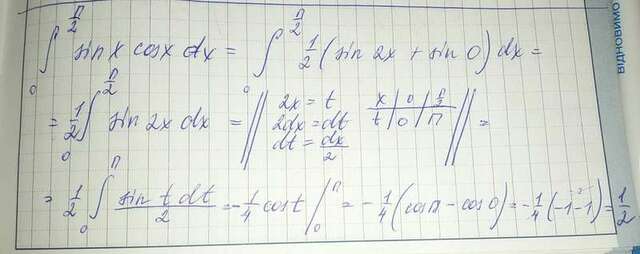 ∫₀^(π/2) sin x cos x dx = ∫₀^(π/2) 1/2 (sin 2x + sin 0) dx =
= 1/2 ∫₀^(π/2) sin 2x dx = || 2x = t x | 0 | π/2
2dx = dt t | 0 | π || =
dt = dx/2
= 1/2 ∫₀^π sin t dt/2 = -1/4 cos t |₀^π = -1/4 (cos π - cos 0) = -1/4 (-1-1) = 1/2
ВІДНОВИМО